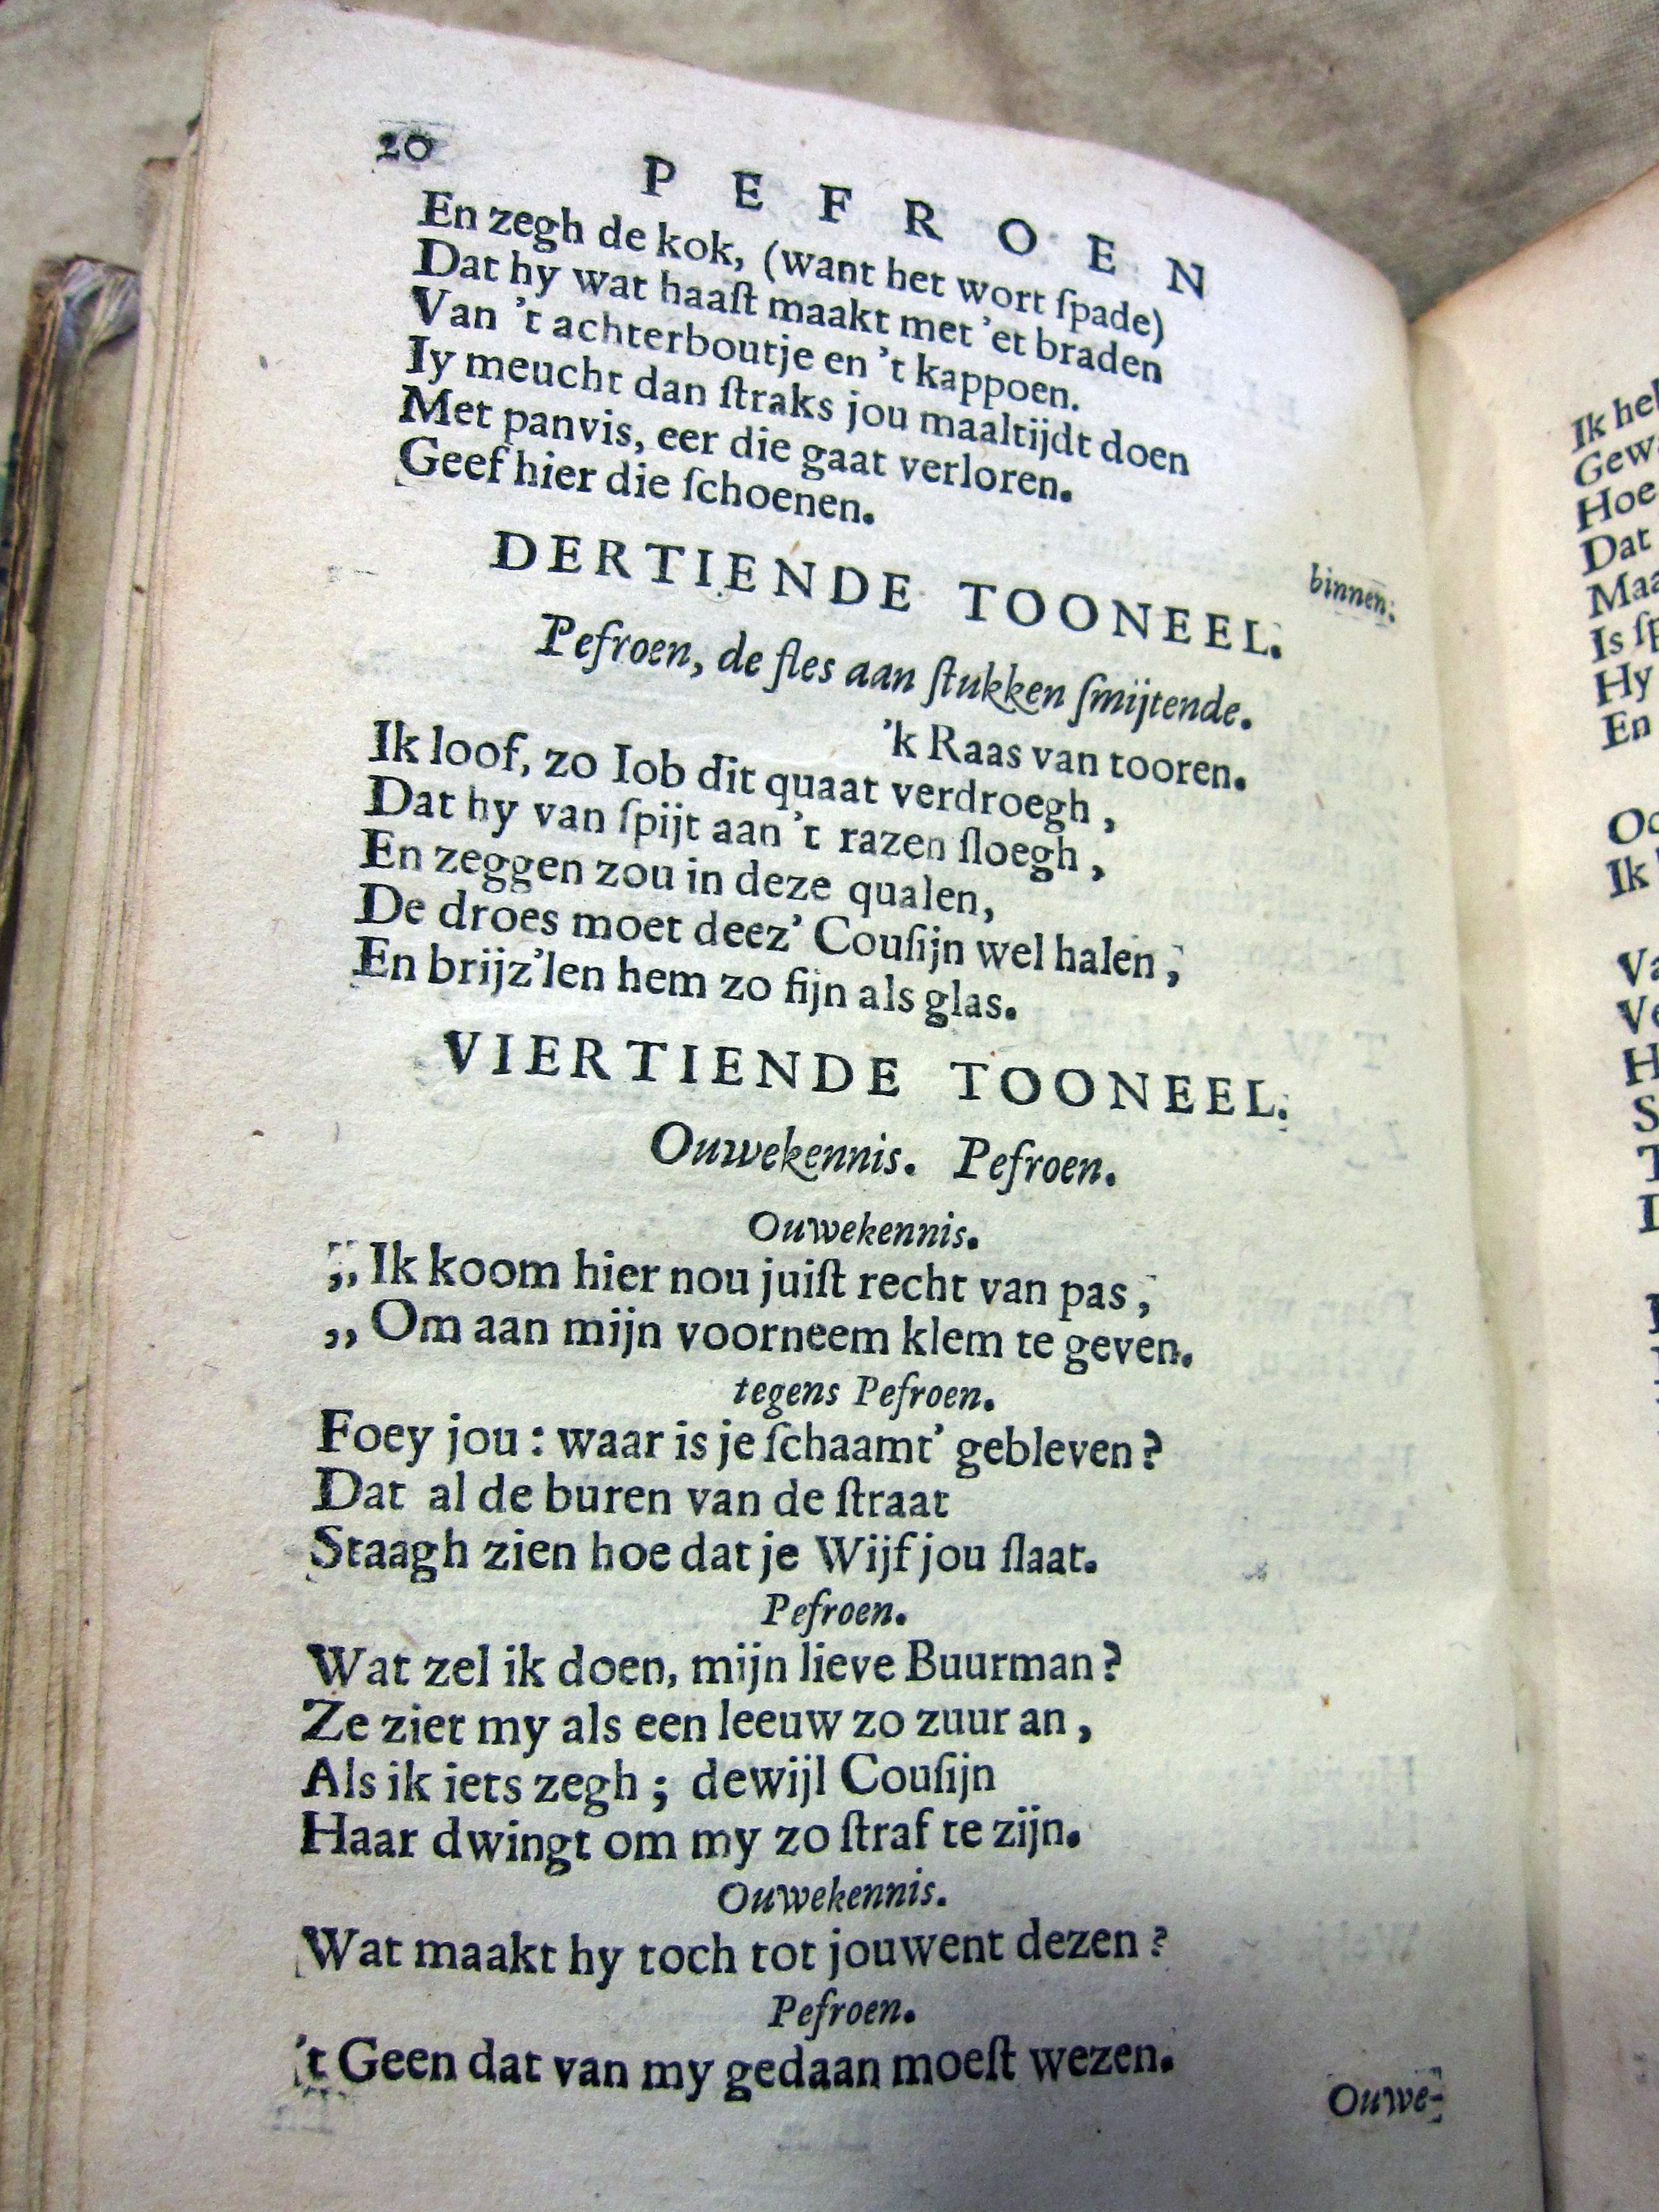 20
PEFROEN
En zegh de kok, (want het wort ſpade)
Dat hy wat haaſt maakt met 'et braden
Van 't achterboutje en 't kappoen.
Iy meucht dan ſtraks jou maaltijdt doen
Met panvis, eer die gaat verloren.
Geef hier die ſchoenen.
binnen.
DERTIENDE TOONEEL.
Pefroen, de fles aan ſtukken ſmijtende.
'k Raas van tooren.
Ik loof, zo Iob dit quaat verdroegh,
Dat hy van ſpijt aan 't razen ſloegh,
En zeggen zou in deze qualen,
De droes moet deez' Couſijn wel halen,
En brijz'len hem zo fijn als glas.
VIERTIENDE TOONEEL.
Ouwekennis. Pefroen.
Ouwekennis.
„ Ik koom hier nou juiſt recht van pas,
„ Om aan mijn voorneem klem te geven.
tegens Pefroen.
Foey jou: waar is je ſchaamt' gebleven?
Dat al de buren van de ſtraat
Staagh zien hoe dat je Wijf jou ſlaat.
Pefroen.
Wat zel ik doen, mijn lieve Buurman?
Ze ziet my als een leeuw zo zuur an,
Als ik iets zegh; dewijl Couſijn
Haar dwingt om my zo ſtraf te zijn.
Ouwekennis.
Wat maakt hy toch tot jouwent dezen?
Pefroen.
't Geen dat van my gedaan moeſt wezen.
Ouwe-
Ik
Hoe
Dat
Hy
En
Ik